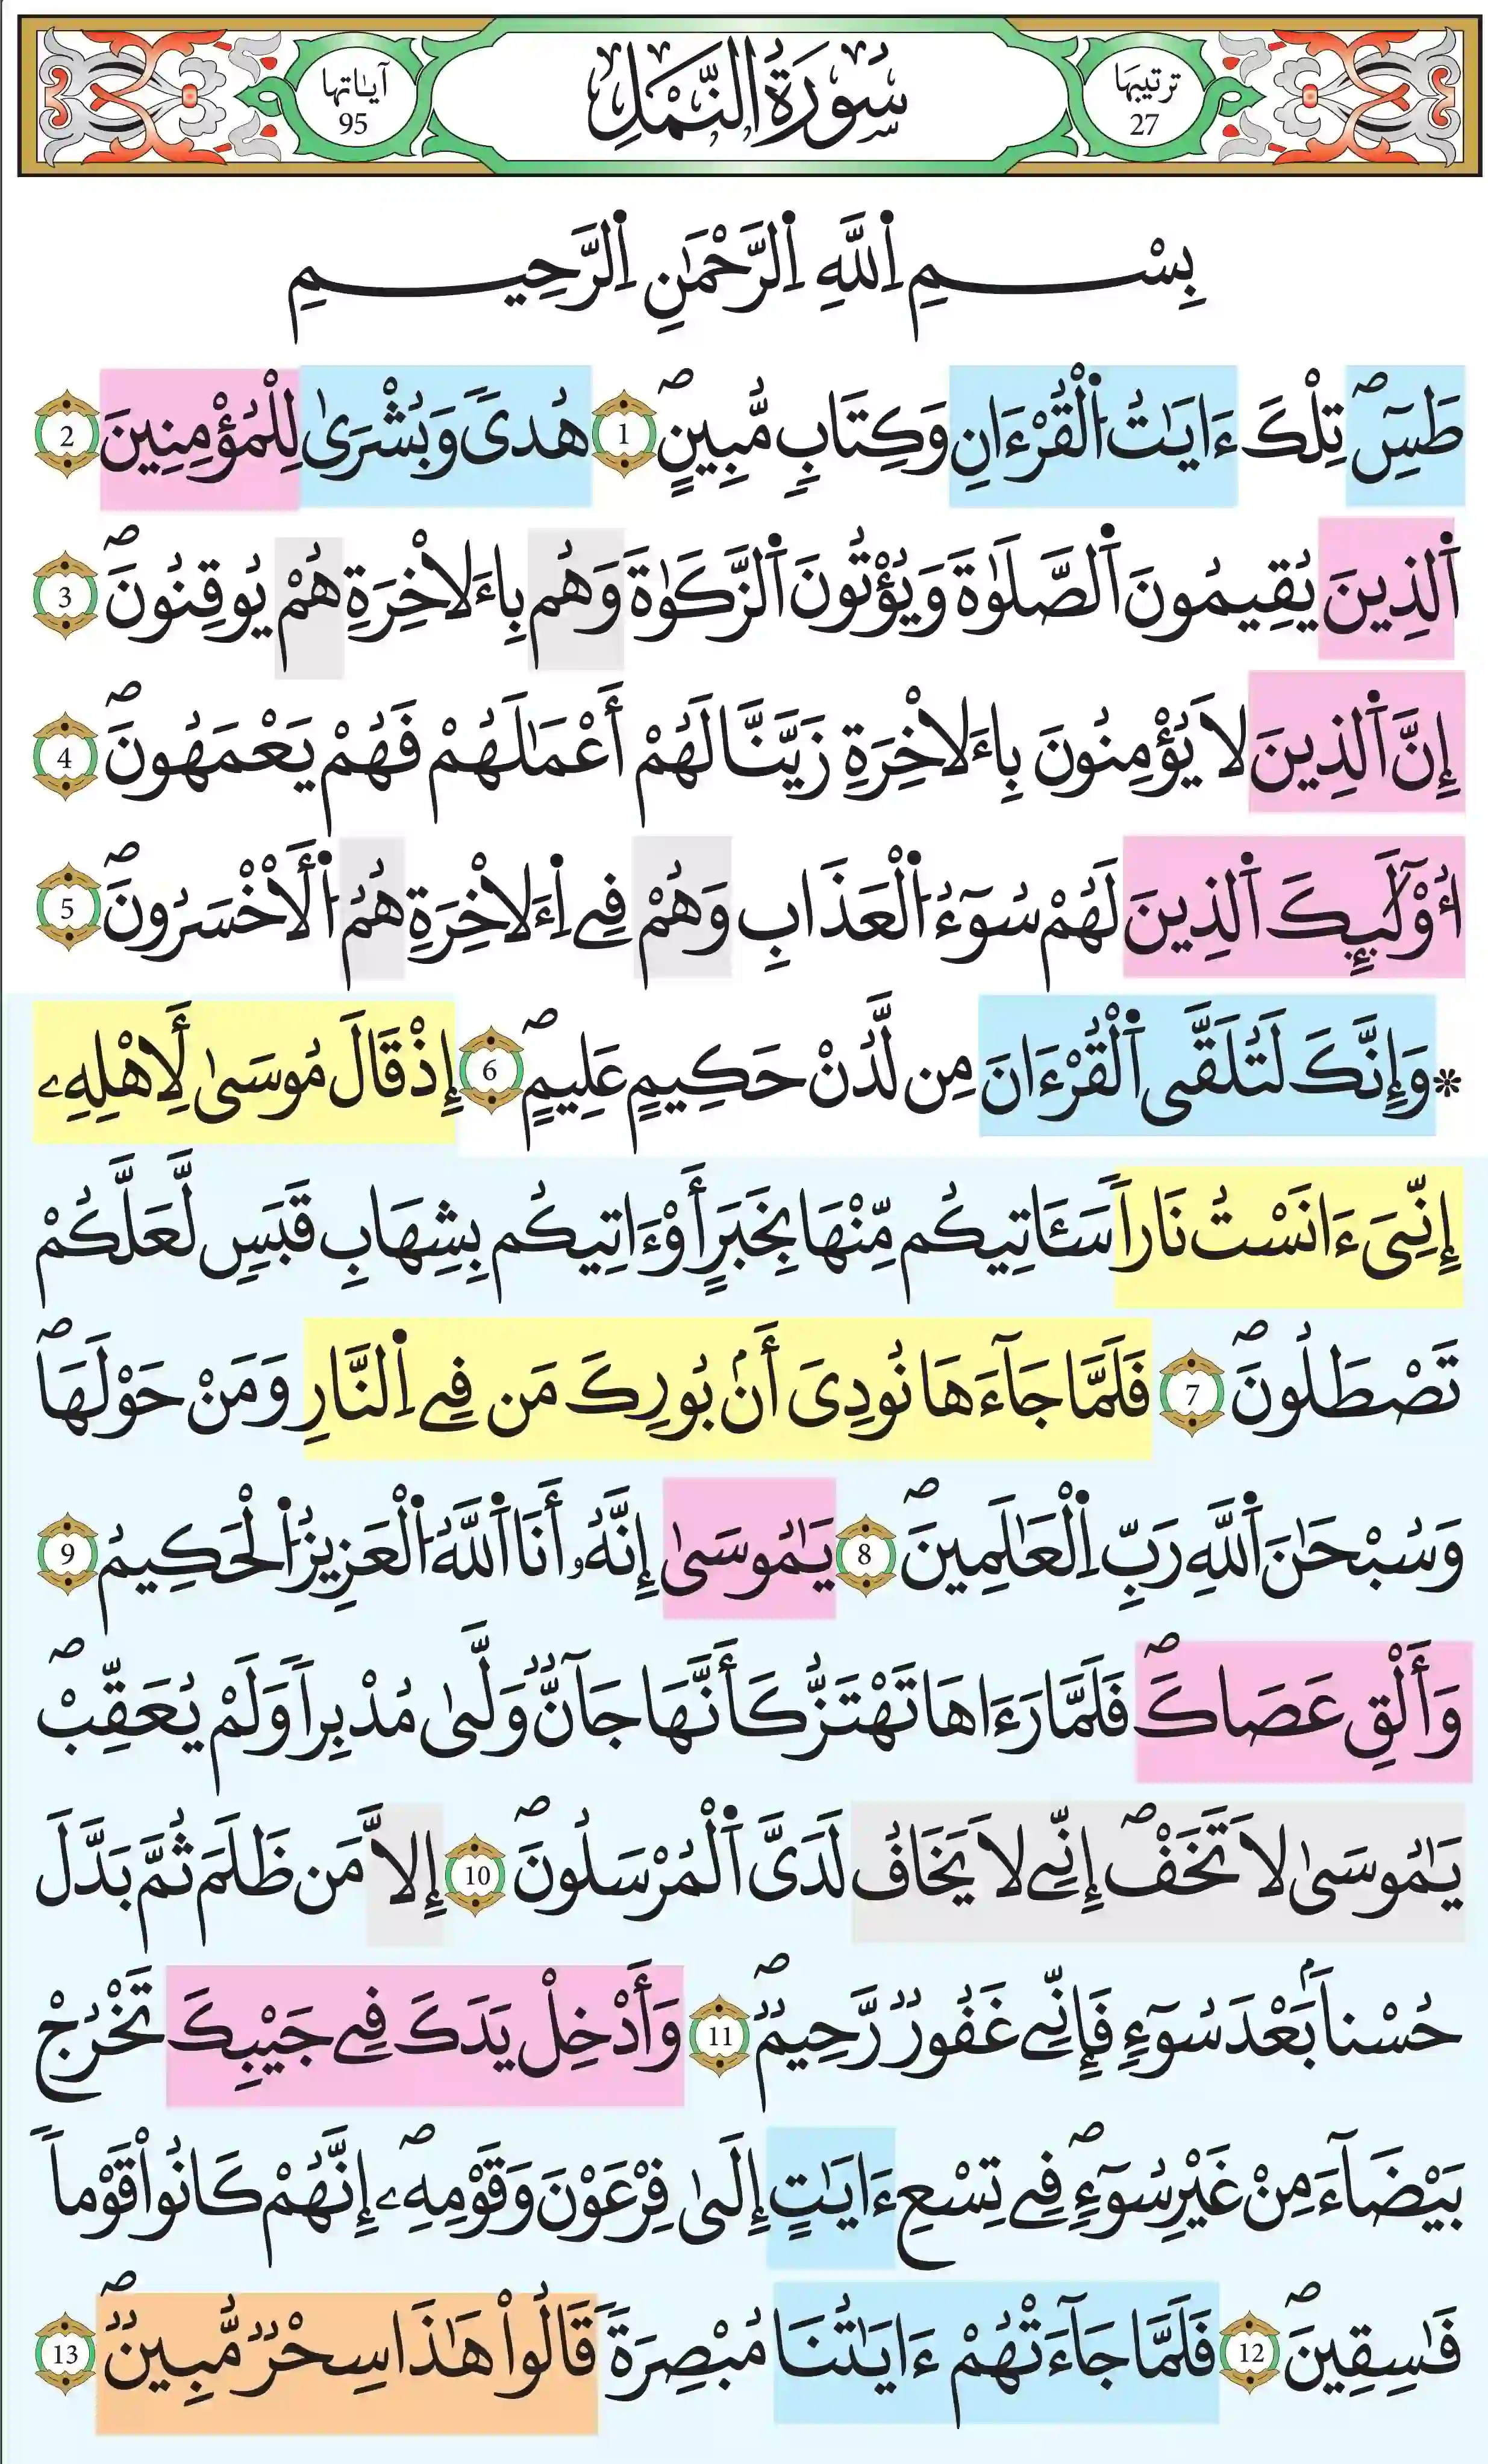 ترتيبها 27
سُورَةُ النَّمْلِ
آياتها 95
بِسْمِ اِ۬للَّهِ اِ۬لرَّحْمَٰنِ اِ۬لرَّحِيمِ
طَسٓۖ تِلْكَ ءَايَٰتُ اُ۬لْقُرْءَانِ وَكِتَابٖ مُّبِينٍۖ 1 هُدىٗ وَبُشْرَىٰ لِلْمُؤْمِنِينَ 2
اَ۬لذِينَ يُقِيمُونَ اَ۬لصَّلَوٰةَ وَيُؤْتُونَ اَ۬لزَّكَوٰةَ وَهُم بِالَاخِرَةِ هُمْ يُوقِنُونَۖ 3
إِنَّ اَ۬لذِينَ لَا يُؤْمِنُونَ بِالَاخِرَةِ زَيَّنَّا لَهُمْ أَعْمَٰلَهُمْ فَهُمْ يَعْمَهُونَۖ 4
أُوْلَٰٓئِكَ اَ۬لذِينَ لَهُمْ سُوٓءُ اُ۬لْعَذَابِ وَهُمْ فِے اِ۬لَاخِرَةِ هُمُ اُ۬لَاخْسَرُونَۖ 5
* وَإِنَّكَ لَتُلَقَّى اَ۬لْقُرْءَانَ مِن لَّدُنْ حَكِيمٍ عَلِيمٍۖ 6 إِذْ قَالَ مُوسَىٰ لَأَهْلِهِۦ
إِنِّيَ ءَانَسْتُ نَاراٗ سَـَٔاتِيكُم مِّنْهَا بِخَبَرٍ أَوَ ءَاتِيكُم بِشِهَابِ قَبَسٖ لَّعَلَّكُمْ
تَصْطَلُونَۖ 7 فَلَمَّا جَآءَهَا نُودِيَ أَنۢ بُورِكَ مَن فِے اِ۬لنَّارِ وَمَنْ حَوْلَهَاۖ
وَسُبْحَٰنَ اَ۬للَّهِ رَبِّ اِ۬لْعَٰلَمِينَۖ 8 يَٰمُوسَىٰ إِنَّهُۥ أَنَا اَ۬للَّهُ اُ۬لْعَزِيزُ اُ۬لْحَكِيمُ 9
وَأَلْقِ عَصَاكَۖ فَلَمَّا رَءَاهَا تَهْتَزُّ كَأَنَّهَا جَآنّٞ وَلَّىٰ مُدْبِراٗ وَلَمْ يُعَقِّبْۖ
يَٰمُوسَىٰ لَا تَخَفْۖ إِنِّے لَا يَخَافُ لَدَيَّ اَ۬لْمُرْسَلُونَۖ 10 إِلَّا مَن ظَلَمَ ثُمَّ بَدَّلَ
حُسْناَۢ بَعْدَ سُوٓءٖ فَإِنِّے غَفُورٞ رَّحِيمٞۖ 11 وَأَدْخِلْ يَدَكَ فِے جَيْبِكَ تَخْرُجْ
بَيْضَآءَ مِنْ غَيْرِ سُوٓءٖۖ فِے تِسْعِ ءَايَٰتٍ إِلَىٰ فِرْعَوْنَ وَقَوْمِهِۦۖ إِنَّهُمْ كَانُواْ قَوْماٗ
فَٰسِقِينَۖ 12 فَلَمَّا جَآءَتْهُمْ ءَايَٰتُنَا مُبْصِرَةٗ قَالُواْ هَٰذَا سِحْرٞ مُّبِينٞۖ 13